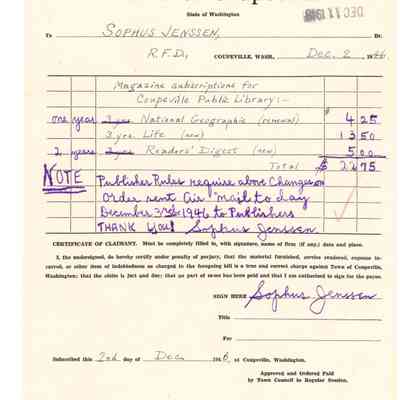 State of Washington
DEC 11 1946
To SOPHUS JENSSEN, Dr.
R.F.D., COUPEVILLE, WASH., Dec. 2, 1946
Magazine subscriptions for
Coupeville Public Library:-
one year 3 yrs. National Geographic (renewal) $ 4 25
3 yrs. Life (new) 13 50
2 years 3 yrs. Readers' Digest (new) 5 00
Total $ 22 75
NOTE Publisher Rules require above Changes on
Order sent air mail to day
December 3rd 1946 to Publishers
THANK You! Sophus Jenssen
CERTIFICATE OF CLAIMANT. Must be completely filled in, with signature, name of firm (if any) date and place.
I, the undersigned, do hereby certify under penalty of perjury, that the material furnished, service rendered, expense in-
curred, or other item of indebtedness as charged in the foregoing bill is a true and correct charge against Town of Coupeville,
Washington; that the claim is just and due; that no part of same has been paid and that I am authorized to sign for the payee.
SIGN HERE Sophus Jenssen
Title
For
Subscribed this 2nd day of Dec. 1946, at Coupeville, Washington.
Approved and Ordered Paid
by Town Council in Regular Session.